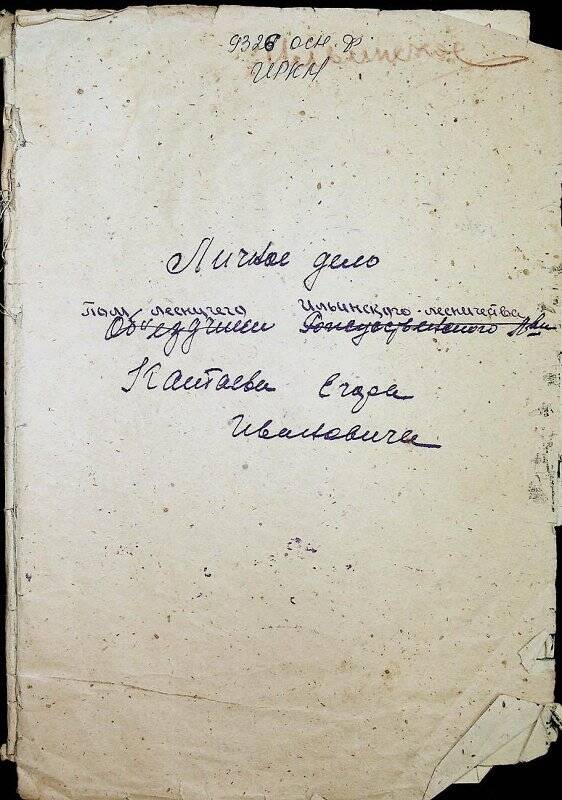 9326 осн ф
Ильинское
ИРКМ
Личное дело
пом. лесничего Ильинского лесничества
Объездчика Рождественского л-ва
Каптаева Егора
Ивановича